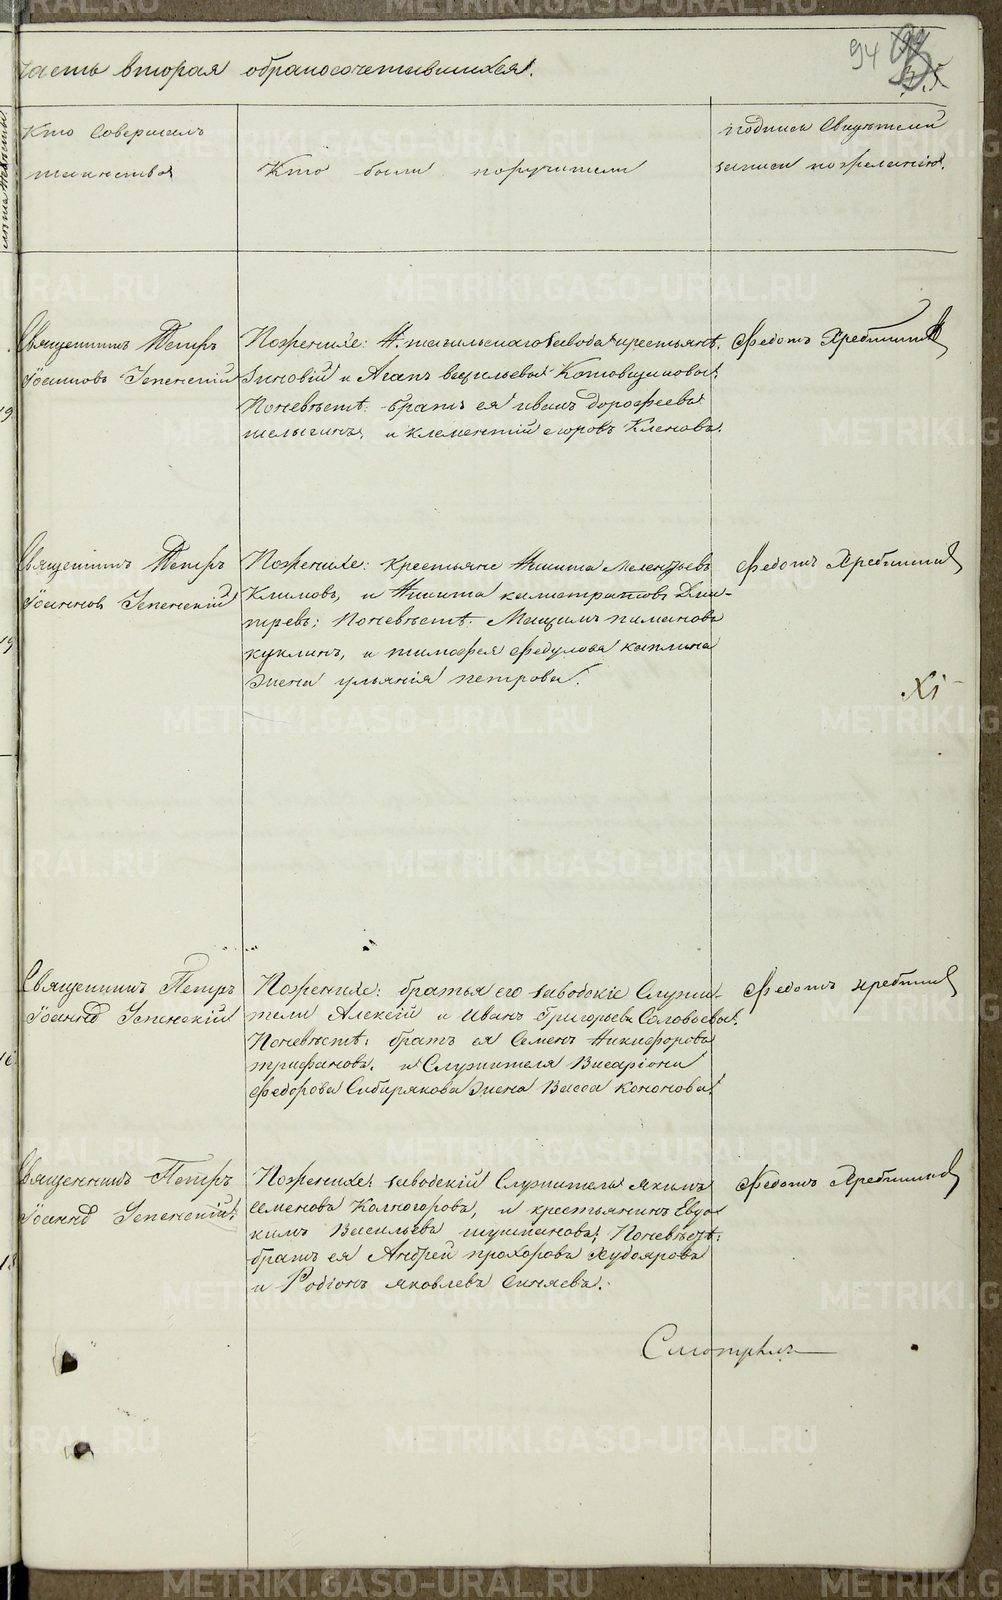 94
часть вторая обракосочетавшихся.
Кто совершалъ
таинство
Кто были поручители
подпись свидѣтелей
записи пожеланію.
Священникъ Петръ
Іоанновъ Успенскій
Поженихе: Н. тагильскаго завода крестьянѣ.
Зиновій и Агапъ васильевы Котовщиковы.
Поневѣстѣ: братъ ея иванъ дорофеевъ
шелыгинъ, и клементій егоровъ Кленовъ.
Федотъ Хребтиковъ
Священникъ Петръ
Іоанновъ Успенскій
Поженихе: крестьяне Никита Мелентьевъ
Климовъ, и Никита калистратовъ Дми-
тревъ; Поневѣстѣ: Максимъ пимановъ
куклинъ, и тимофея федулова каплина
жена ульянія петрова.
Федотъ Хребтиковъ
XI
Священникъ Петръ
Іоаннъ Успенскій
Поженихе: братья его заводскіе Служи-
тели Алексѣй и Иванъ Григорьевы Соловьевы.
Поневѣстѣ: братъ ея Семенъ Никифоровъ
трифановъ. и Служителя Висаріона
федорова Сибирякова жена Васса кононова.
Федотъ Хребтиковъ
Священникъ Петръ
Іоаннъ Успенскій.
Поженихе: заводскій Служитель Якимъ
семеновъ Колногоровъ, и крестьянинъ Евдо-
кимъ Васильевъ шушпановъ; Поневѣстѣ:
братъ ея Андрей прохоровъ Худояровъ
и Родіонъ яковлевъ Синяевъ.
Федотъ Хребтиковъ
Смотрѣлъ
METRIKI.GASO-URAL.RU